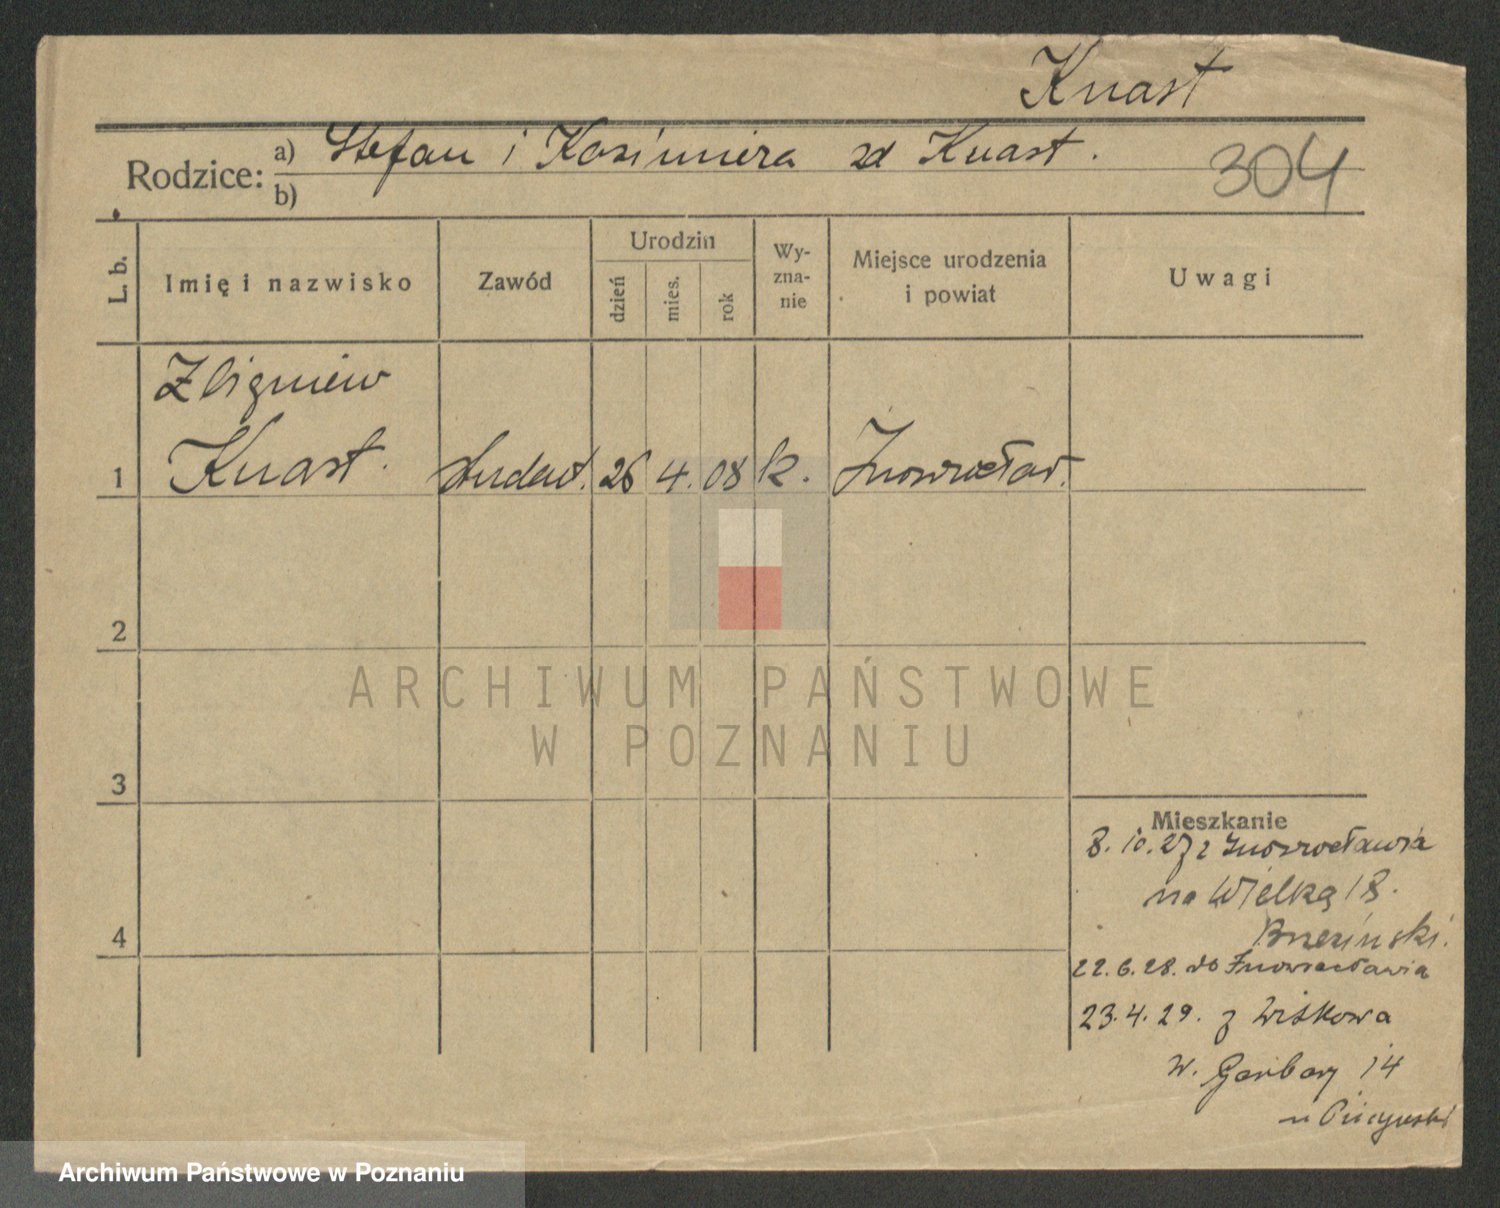 Knast
Rodzice: a) Stefan i Kazimiera zd Knast.
304
b)
L. b.
Imię i nazwisko
Zawód
Urodzin
dzień
mies.
rok
Wy-
zna-
nie
Miejsce urodzenia
i powiat
Uwagi
Zbigniew
1 Knast. student. 26 4. 08 k. Inowrocław.
2
3
4
Mieszkanie
8. 10. 27 z Inowrocławia
na Wielką 18.
22. 6. 28. do Inowrocławia
23. 4. 29. z
W. Garbary 14
ARCHIWUM PAŃSTWOWE
W POZNANIU
Archiwum Państwowe w Poznaniu